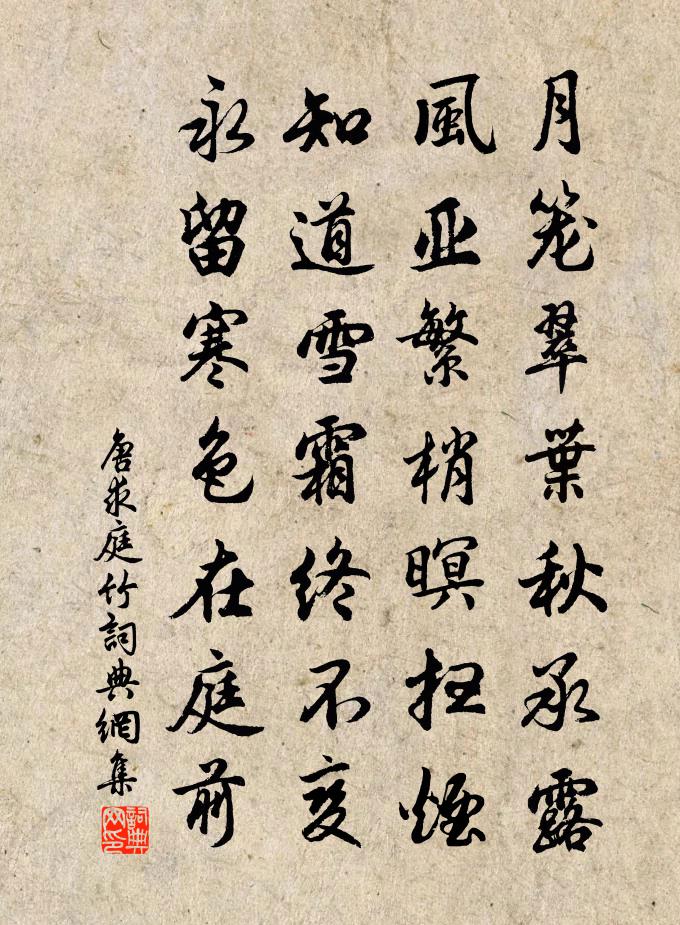 月笼翠葉秋承露
風亚繁梢暝扫煙
知道雪霜终不变
永留寒色在庭前
唐求庭竹詞典網集
詞典网印